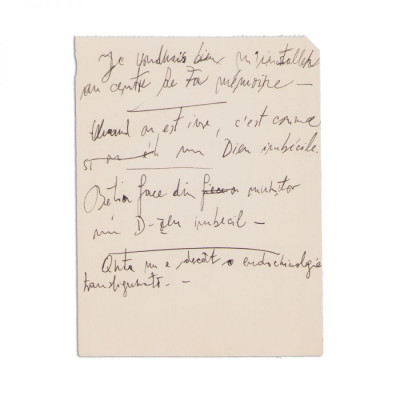 Je voudrais bien m'installer
au centre de ta mémoire —
Quand on est ivre, c'est comme
si on un Dieu imbécile.
Beția face din muritor
un D-zeu imbecil —
nu e decât o endocrinologie
transfigurată. —